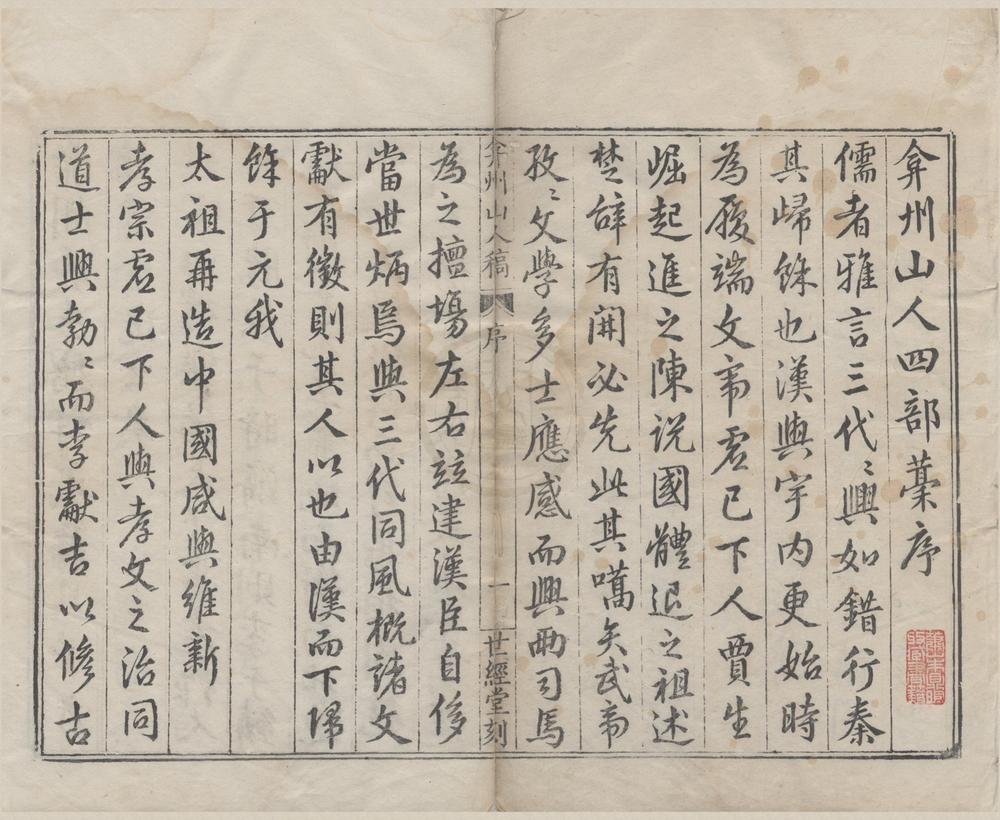 弇州山人四部藁序
儒者雅言三代〻興如錯行秦
其歸餘也漢興宇内更始時
為履端文帝君已下人賈生
崛起進之陳説國體退之祖述
楚辭有開必先此其嚆矢武帝
孜〻文學多士應感而興兩司馬
弇州山人稿 序 一 世經堂刻
為之擅場左右竝建漢臣自侈
當世炳焉與三代同風概諸文
獻有徵則其人以也由漢而下歸
餘于元我
太祖再造中國咸與維新
孝宗君已下人與孝文之治同
道士興勃〻而李獻吉以修古